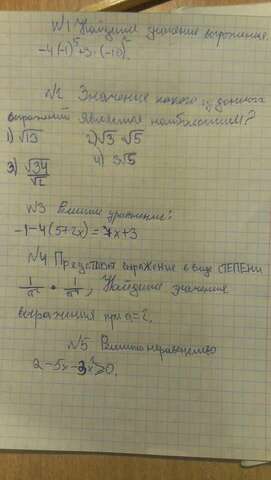 №1 Найдите значение выражения.
-4(-1)⁵+3·(-10)²
№2 Значение какого из данных
выражений является наибольшим?
1) √13 2) √3·√5
3) √34/√2 4) 3√5
№3 Решите уравнение:
-1-4(5+2x)=7x+3
№4 Представьте выражение в виде СТЕПЕНИ
1/a² · 1/a³, Найдите значение
выражения при a=2.
№5 Решите неравенство
2-5x-3x²≥0.